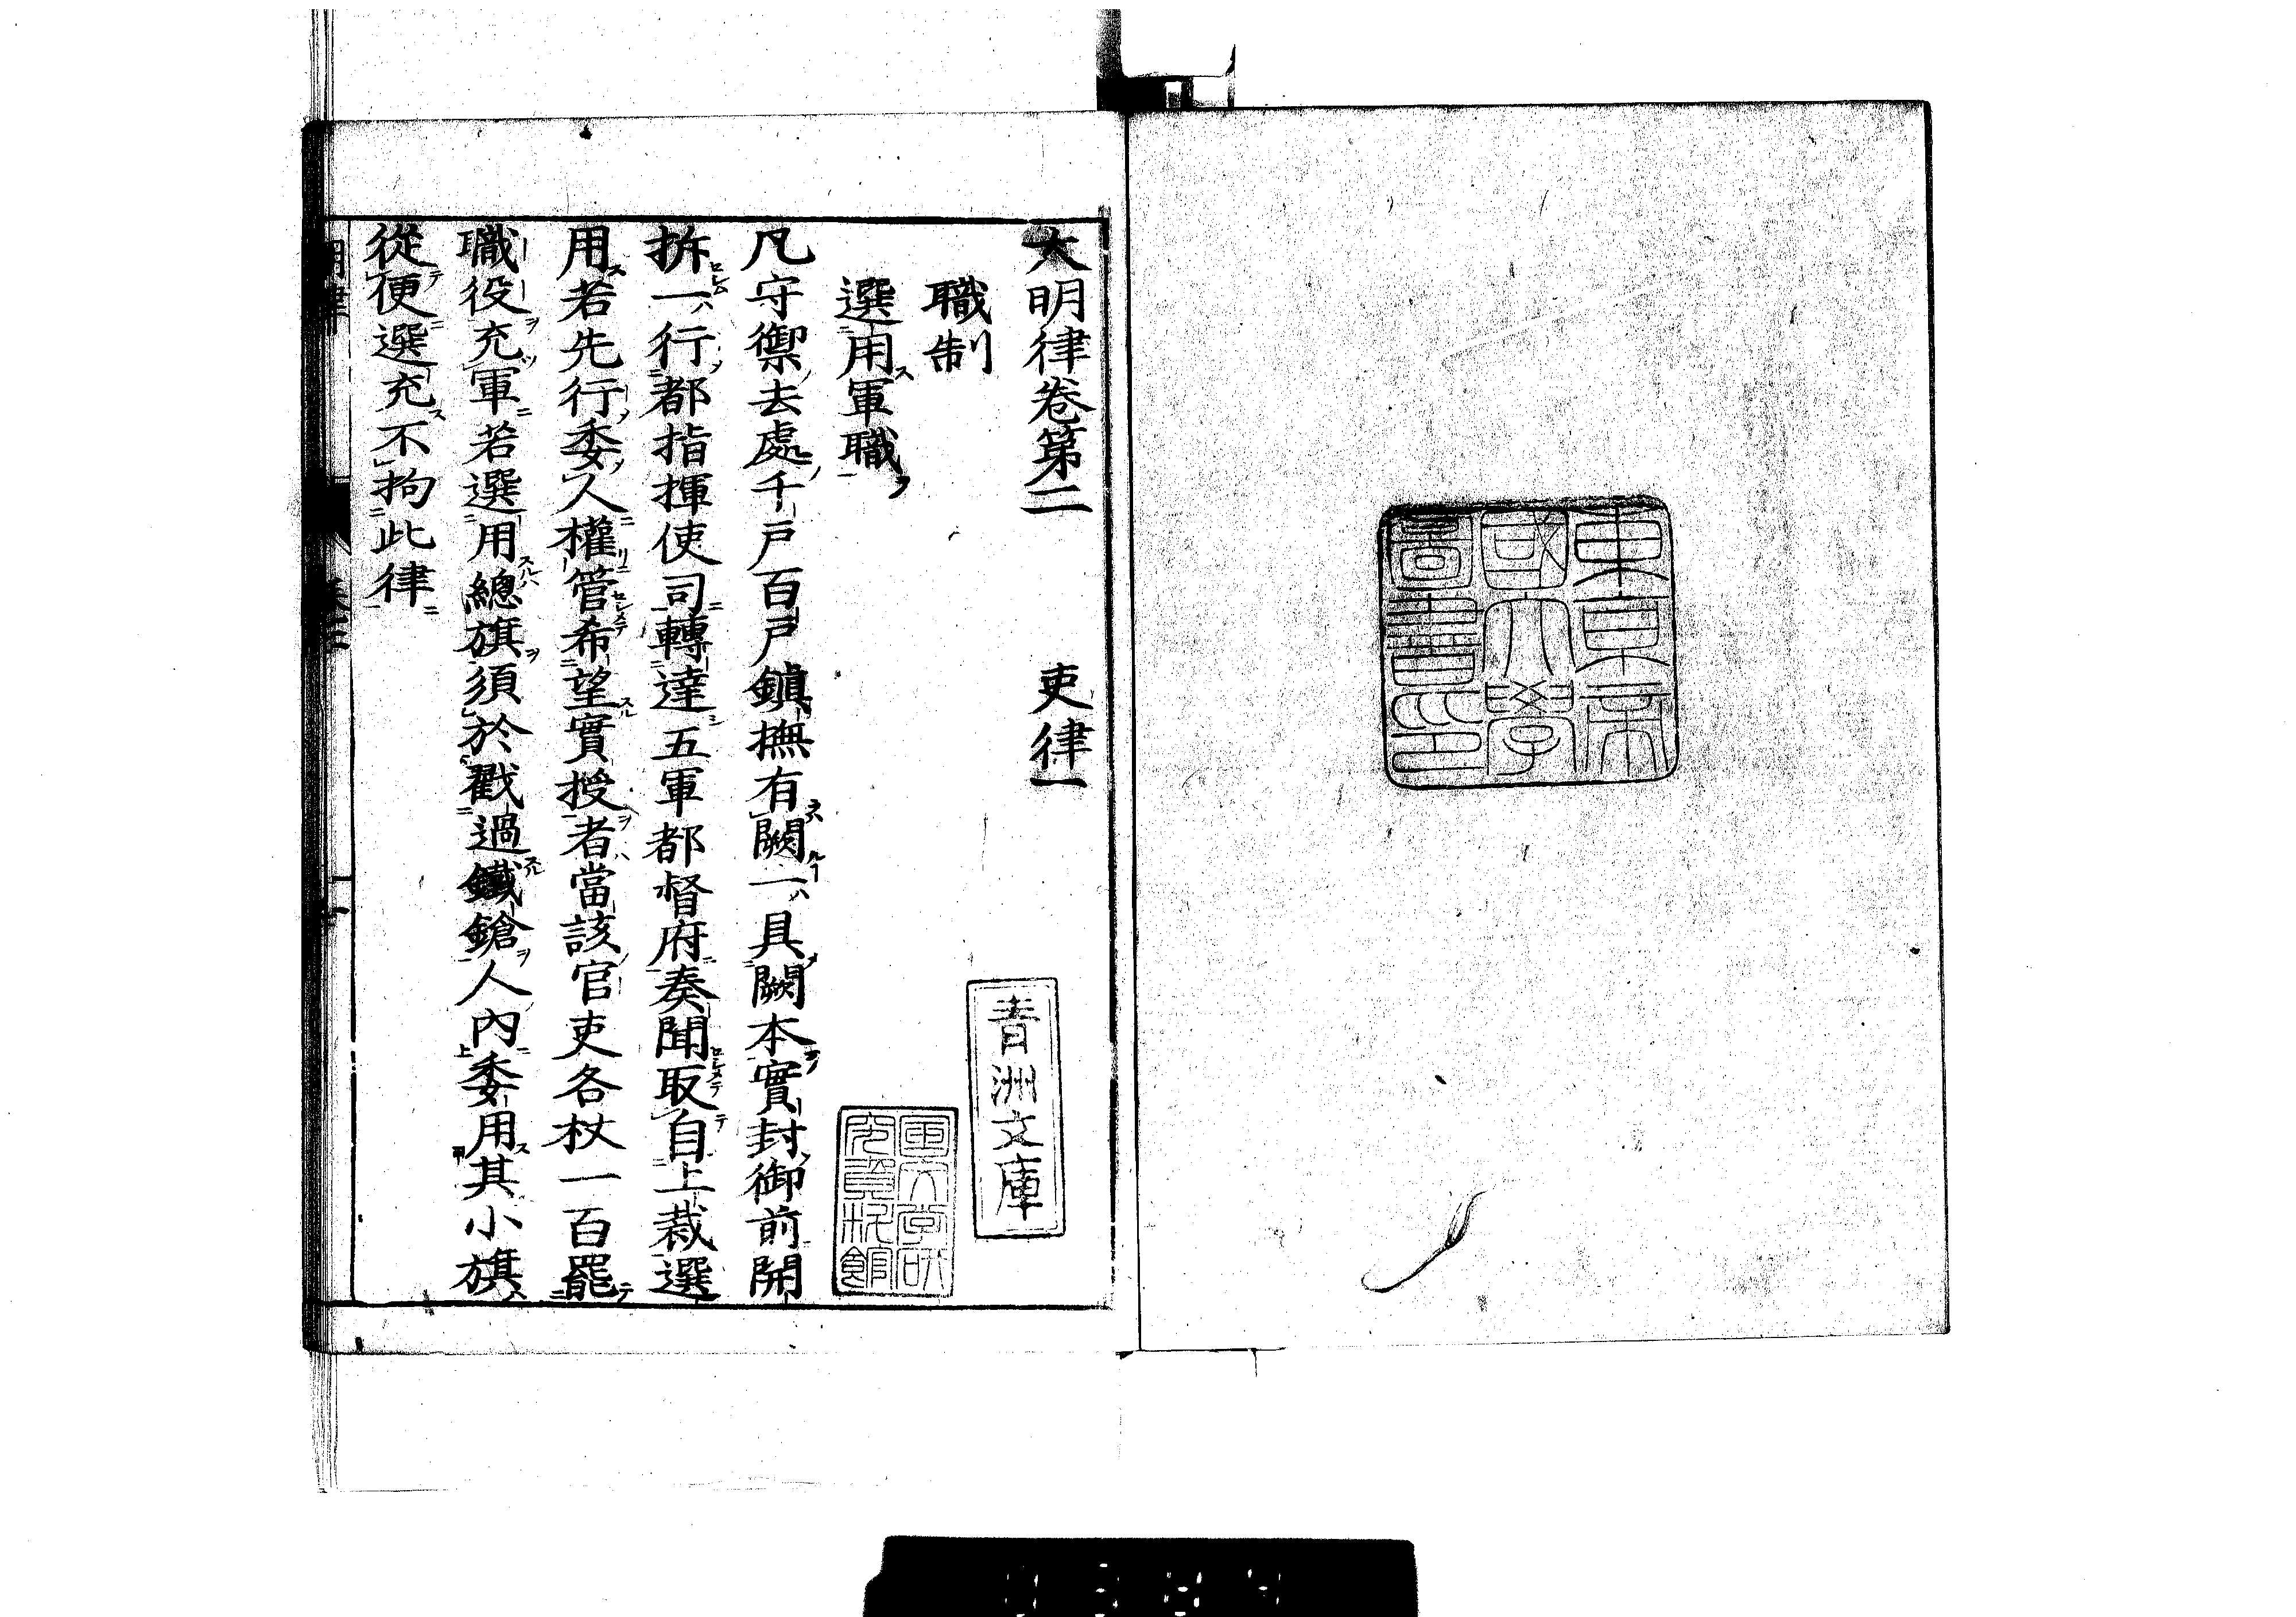 東京帝
國大學
圖書印
大明律卷第二　吏律一
職制
選用軍職
凡守禦去處千戶百戶鎮撫有闕一具闕本實封御前開
拆一行都指揮使司轉達五軍都督府奏聞取自上裁選
用若先行委人權管希望實授者當該官吏各杖一百罷
職役充軍若選用總旗須於戳過鐵鎗人內委用其小旗
從便選充不拘此律
青洲文庫